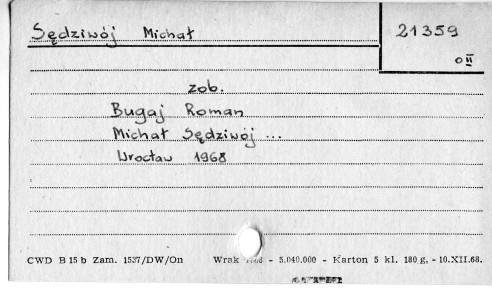 Sędziwój Michał
21359
0 II
zob.
Bugaj Roman
Michał Sędziwój ...
Wrocław 1968
CWD B 15 b Zam. 1537/DW/On Wrak - 5.040.000 - Karton 5 kl. 180 g. - 10.XII.68.